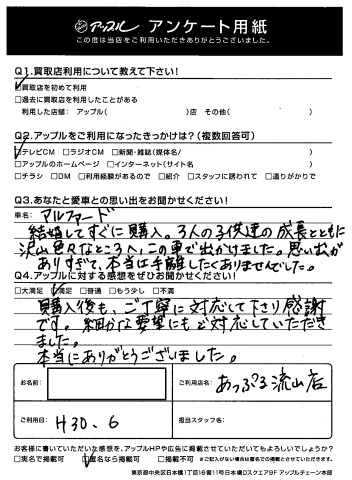 アップル アンケート用紙
この度は当店をご利用いただきありがとうございました。
Q1.買取店利用について教えて下さい!
☑買取店を初めて利用
□過去に買取店を利用したことがある
利用した店舗: アップル( )店 その他( )
Q2.アップルをご利用になったきっかけは?(複数回答可)
☑テレビCM □ラジオCM □新聞・雑誌(媒体名/ )
□アップルのホームページ □インターネット(サイト名 )
□チラシ □DM □利用経験があるので □紹介 □スタッフに誘われて □通りがかりで
Q3.あなたと愛車との思い出をお聞かせください!
車名: アルファード
結婚してすぐに購入。3人の子供達の成長とともに
沢山色々なところへ、この車で出かけました。思い出が
ありすぎて、本当は手離したくありませんでした。
Q4.アップルに対する感想をぜひお聞かせください!
□大満足 ☑満足 □普通 □もう少し □不満
購入後も、ご丁寧に対応して下さり感謝
です。細かな要望にもご対応していただき
ました。
本当にありがとうございました。
お名前:
ご利用店名: あっぷる流山店
ご利用日: H30.6
担当スタッフ名:
お客様に書いていただいた感想を、アップルHPや広告に掲載させていただいてもよろしいでしょうか?
□実名で掲載可 ☑匿名なら掲載可 □掲載不可 ※ご記入がない場合は匿名での掲載とさせていただきます。
東京都中央区日本橋1丁目16番11号日本橋Dスクエア9F アップルチェーン本部